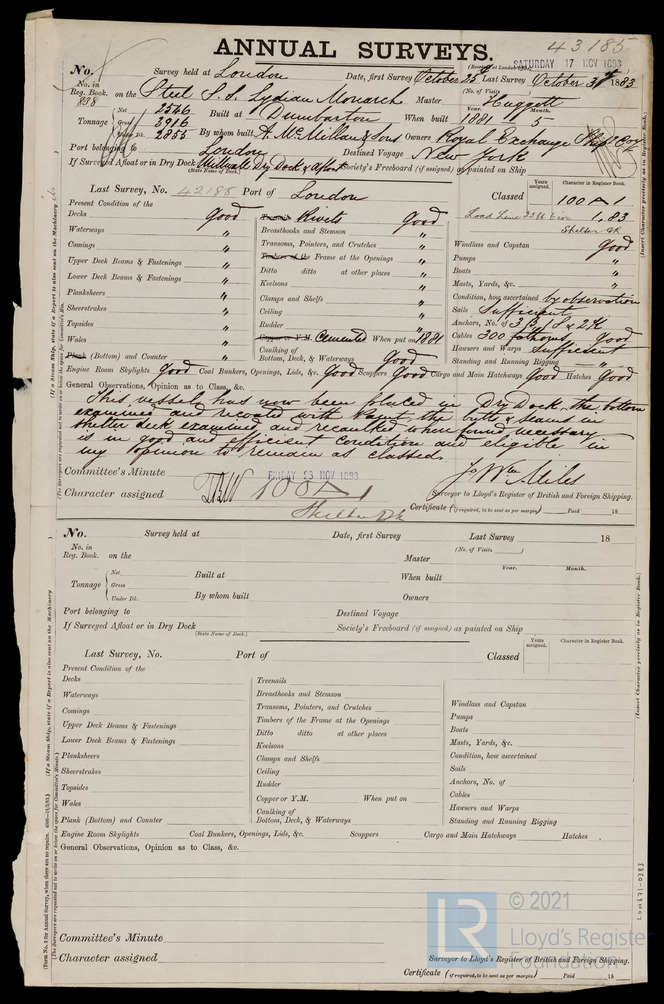 43185
ANNUAL SURVEYS.
(Received at London Office SATURDAY 17 NOV 1883
No. Survey held at London Date, first Survey October 25th Last Survey October 31st 1883
No. in Reg. Book. (No. of Visits)
838 on the Steel S.S. Lydian Monarch Master Huggett
Tonnage Net 2546 Built at Dumbarton When built Year. 1881 Month. 5
Gross 3916
Under Dk. 2855 By whom built A. McMillan & Sons Owners Royal Exchange Ship Coy
Port belonging to London Destined Voyage New York
If Surveyed Afloat or in Dry Dock Millwall Dry Dock & afloat Society's Freeboard (if assigned) as painted on Ship
(State Name of Dock.)
Last Survey, No. 42188 Port of London Classed Years assigned. Character in Register Book.
100 A 1
1,83
Shelter dk
Present Condition of the
Decks good
Waterways "
Comings "
Upper Deck Beams & Fastenings "
Lower Deck Beams & Fastenings "
Planksheers "
Sheerstrakes "
Topsides "
Wales "
Plank (Bottom) and Counter "
Rivets Good
Breasthooks and Stemson "
Transoms, Pointers, and Crutches "
Timbers of the Frame at the Openings "
Ditto ditto at other places "
Keelsons "
Clamps and Shelfs "
Ceiling "
Rudder "
Copper or Y.M. Cemented When put on 1881
Caulking of Bottom, Deck, & Waterways Good
Windlass and Capstan Good
Pumps "
Boats "
Masts, Yards, &c. "
Condition, how ascertained by observation
Sails Sufficient
Anchors, No. of 3 B, 1 S & 2 K
Cables 300 fathoms Good
Hawsers and Warps Sufficient
Standing and Running Rigging "
Engine Room Skylights Good Coal Bunkers, Openings, Lids, &c. Good Scuppers Good Cargo and Main Hatchways Good Hatches Good
General Observations, Opinion as to Class, &c.
This vessel has now been placed in Dry Dock, the bottom
examined and recoated with paint the butts & seams in
shelter deck examined and recaulked where found necessary
is in good and efficient condition and eligible in
my opinion to remain as classed.
Committee's Minute FRIDAY 23 NOV 1883
Character assigned 100 A 1
Shelter Dk
Jo Wm Miles
Surveyor to Lloyd's Register of British and Foreign Shipping.
Certificate (if required, to be sent as per margin) Paid 18
No. Survey held at Date, first Survey Last Survey 18
No. in Reg. Book. (No. of Visits )
on the Master
Tonnage Net Built at When built Year. Month.
Gross
Under Dk. By whom built Owners
Port belonging to Destined Voyage
If Surveyed Afloat or in Dry Dock Society's Freeboard (if assigned) as painted on Ship
(State Name of Dock.)
Last Survey, No. Port of Classed Years assigned. Character in Register Book.
Present Condition of the
Decks
Waterways
Comings
Upper Deck Beams & Fastenings
Lower Deck Beams & Fastenings
Planksheers
Sheerstrakes
Topsides
Wales
Plank (Bottom) and Counter
Treenails
Breasthooks and Stemson
Transoms, Pointers, and Crutches
Timbers of the Frame at the Openings
Ditto ditto at other places
Keelsons
Clamps and Shelfs
Ceiling
Rudder
Copper or Y.M. When put on
Caulking of Bottom, Deck, & Waterways
Windlass and Capstan
Pumps
Boats
Masts, Yards, &c.
Condition, how ascertained
Sails
Anchors, No. of
Cables
Hawsers and Warps
Standing and Running Rigging
Engine Room Skylights Coal Bunkers, Openings, Lids, &c. Scuppers Cargo and Main Hatchways Hatches
General Observations, Opinion as to Class, &c.
Committee's Minute
Character assigned
Surveyor to Lloyd's Register of British and Foreign Shipping.
Certificate (if required, to be sent as per margin) Paid 18
(Insert Character precisely as in Register Book.)
(If a Steam Ship, state if a Report is also sent on the Machinery
LR
© 2021
Lloyd's Register
Foundation